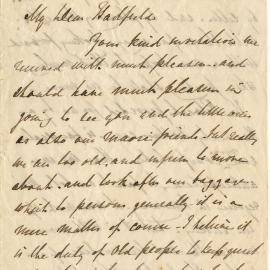 My Dear Hadfield
Your kind invitation we
received with much pleasure and
should have much pleasure in
going to see you and the little ones
as also our Maori friends. but really
we are too old, and infirm to move
about, and look after our baggage
which to persons generally it is a
mere matter of course - I believe it
is the duty of old people to keep quiet